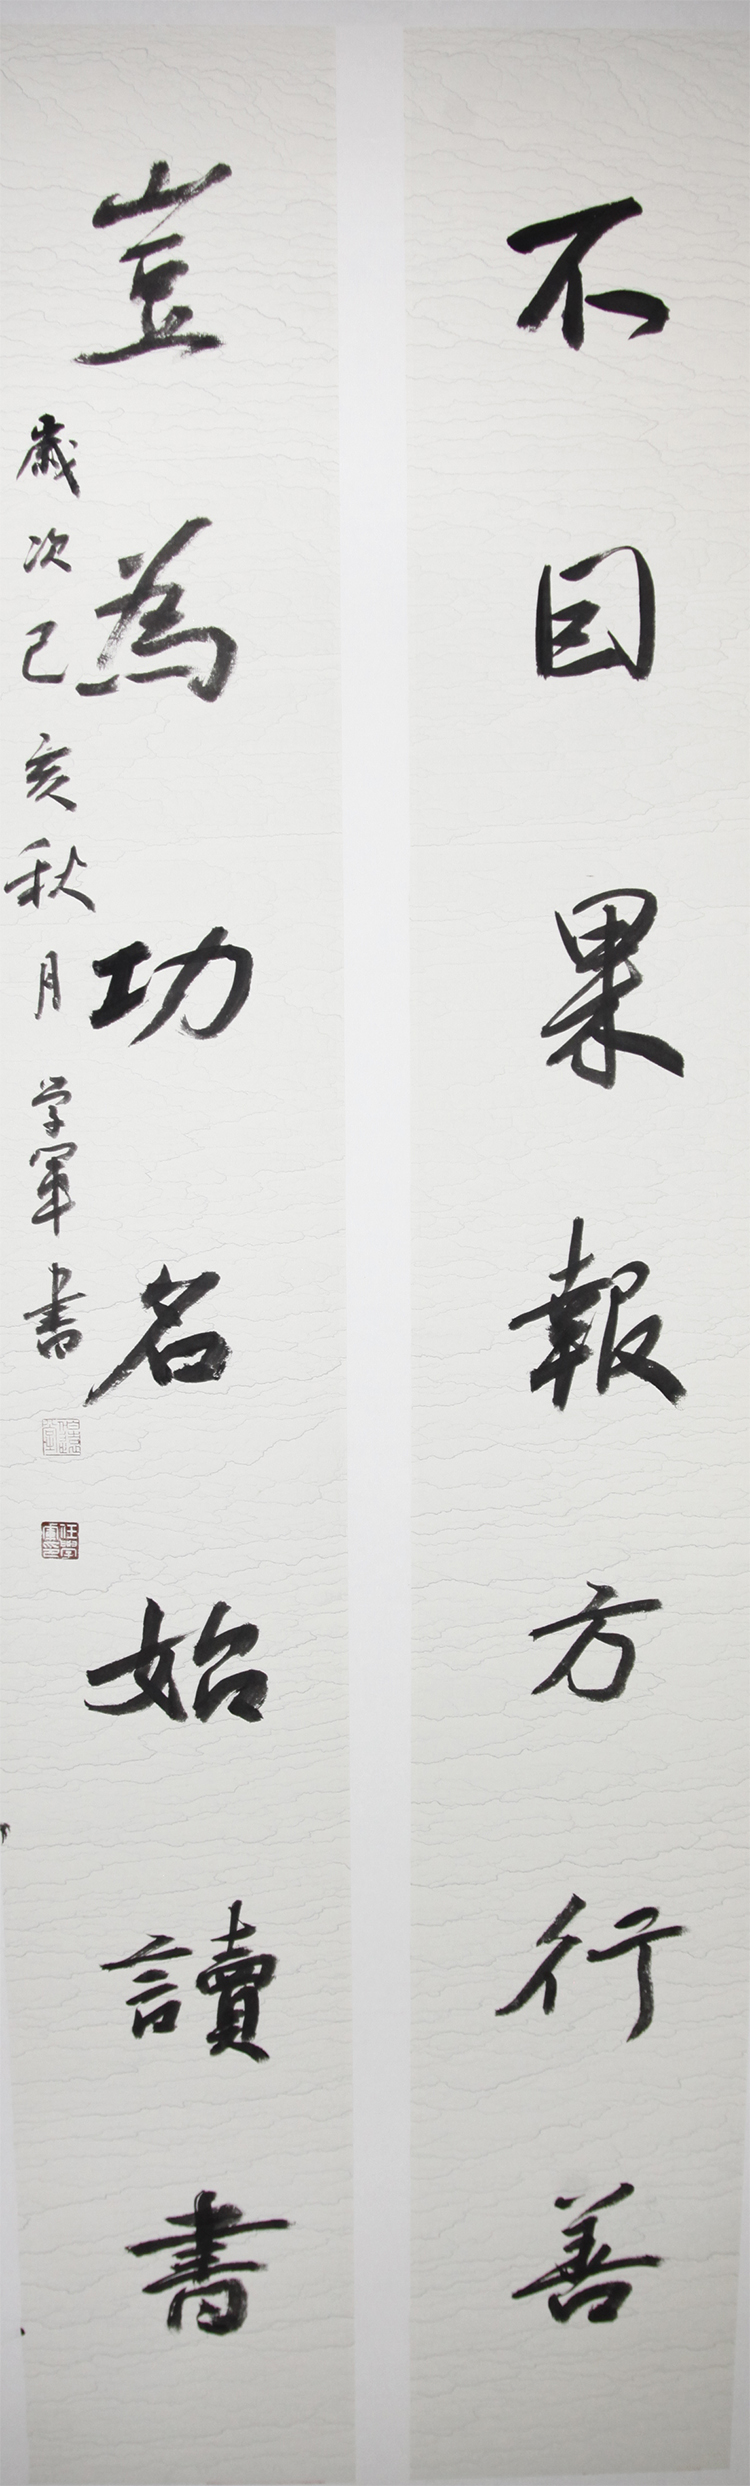 不因果報方行善
豈為功名始讀書
歲次己亥秋月 学軍書